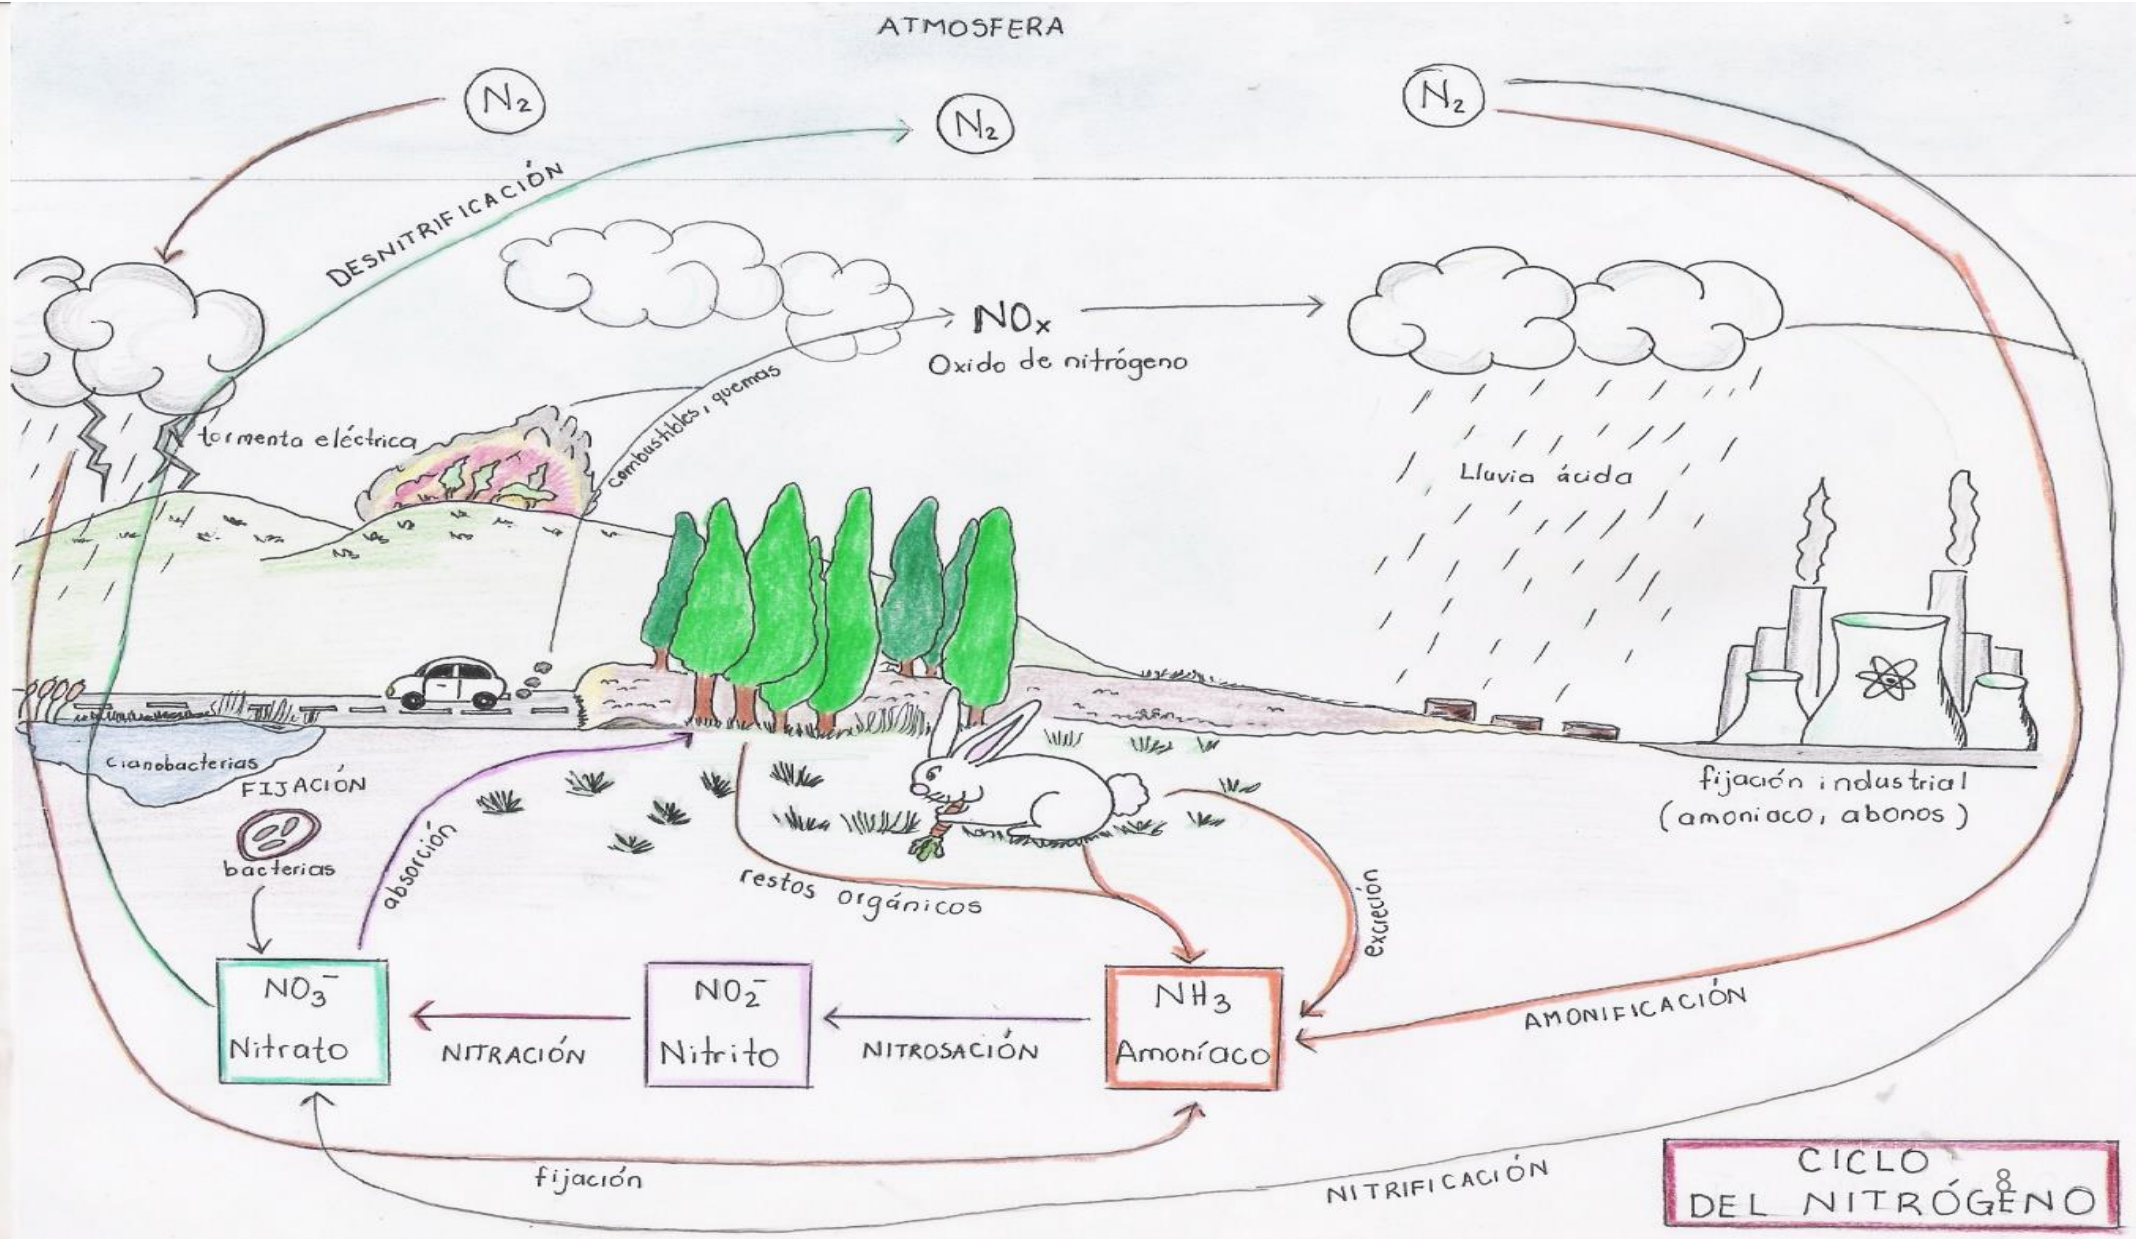 ATMOSFERA
N₂
N₂
N₂
DESNITRIFICACIÓN
NOₓ
Oxido de nitrógeno
combustibles, quemas
tormenta eléctrica
Lluvia ácida
cianobacterias
FIJACIÓN
bacterias
absorción
restos orgánicos
excreción
fijación industrial
(amoniaco, abonos)
NO₃⁻
Nitrato
NITRACIÓN
NO₂⁻
Nitrito
NITROSACIÓN
NH₃
Amoníaco
AMONIFICACIÓN
fijación
NITRIFICACIÓN
CICLO
DEL NITRÓGENO
8